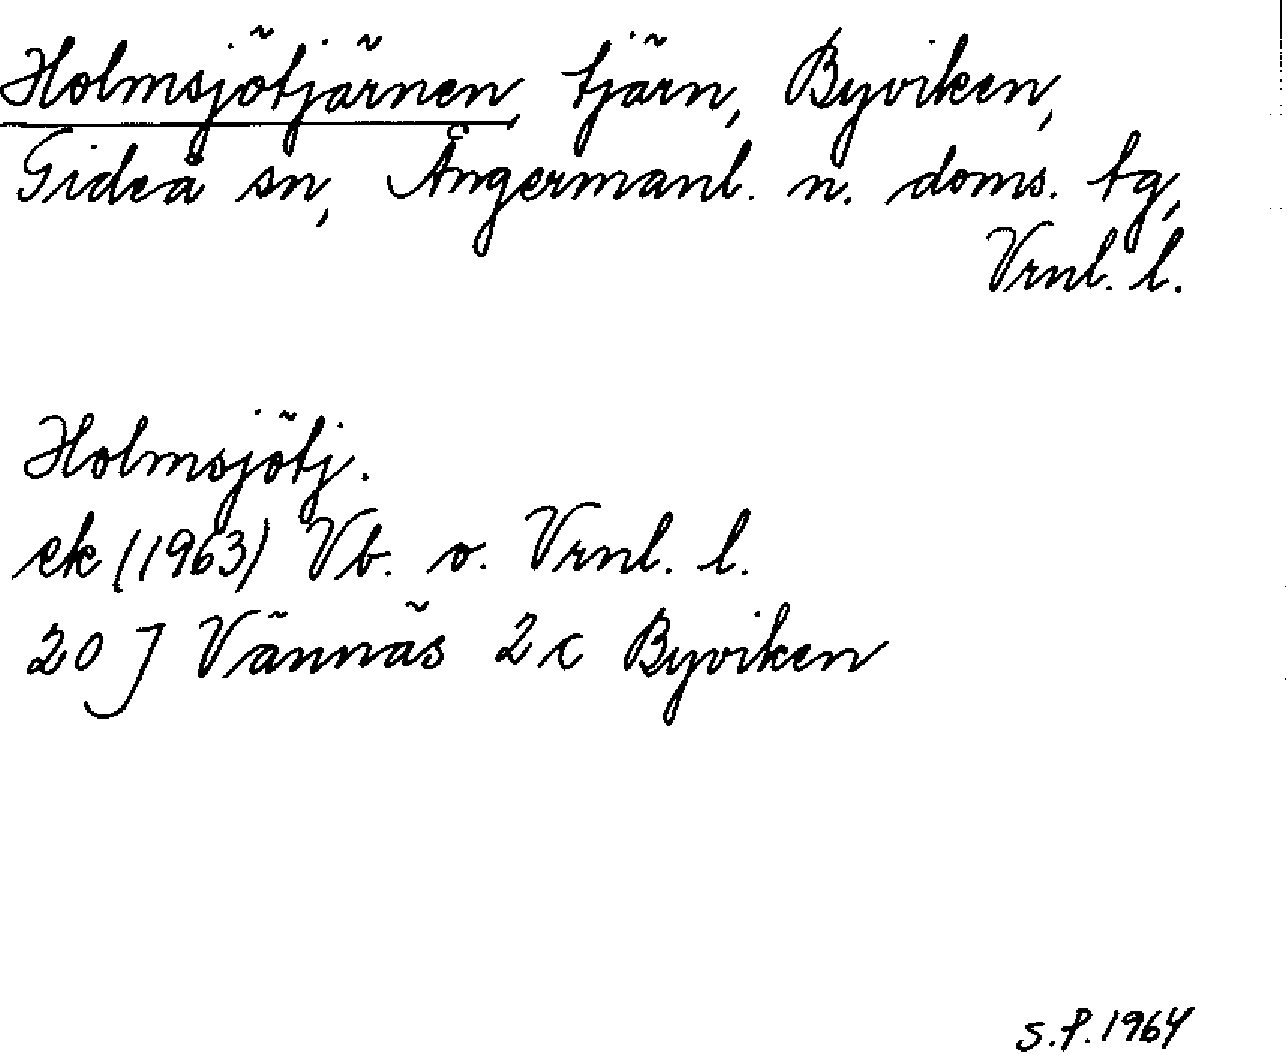 Holmsjötjärnen, tjärn, Byviken,
Gideå sn, Ångermanl. n. doms. tg,
Vrnl. l.
Holmsjötj.
ek (1963) Vb. o. Vrnl. l.
20 J Vännäs 2 c Byviken
S.P. 1964